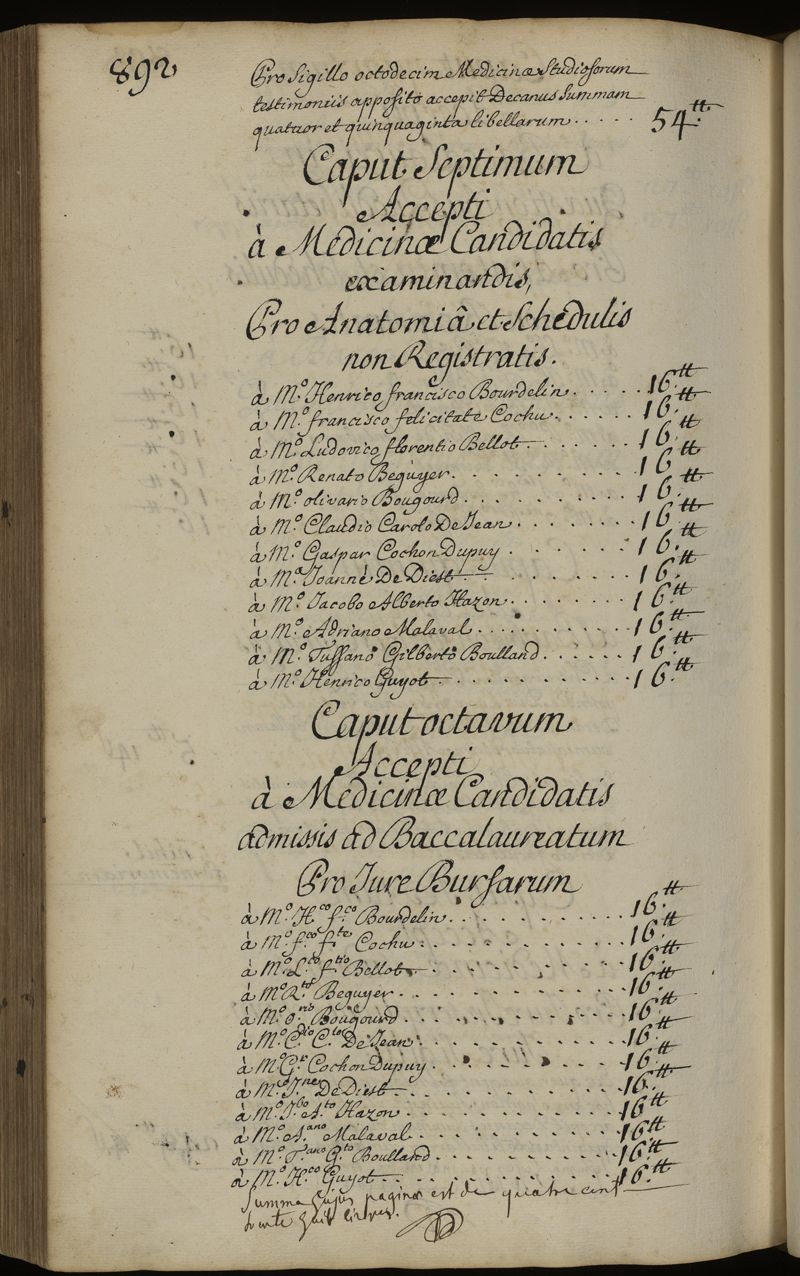 892
Pro Sigillo octodecim Medicinæ Studiosorum
testimoniis apposito accepit Decanus Summam
quatuor et quinquaginta libellarum . . . . . 54.tt
Caput Septimum
Accepti
à Medicinæ Candidatis
examinandis,
Pro Anatomiâ et Schedulis
non Registratis.
à M.o Henrico francisco Bourdelin . . . . . 16.tt
à M.o francisco felicitate Cochu . . . . . . 16.tt
à M.o Ludovico florentio Bellot . . . . . . . 16.tt
à M.o Renato Bequyer . . . . . . . . . . 16.tt
à M.o olivario Bougourd . . . . . . . . . 16.tt
à M.o Claudio Carolo De Jean . . . . . . . 16.tt
à M.o Gaspar Cochon Dupuy . . . . . . . 16.tt
à M.o Joanne De Diest . . . . . . . . . 16.tt
à M.o Jacobo Alberto Hazon . . . . . . . . 16.tt
à M.o Adriano Malaval . . . . . . . . . 16.tt
à M.o Tussano Gilberto Boulland . . . . . . 16.tt
à M.o Henrico Guyot . . . . . . . . . . 16.tt
Caput octavum
Accepti
à Medicinæ Candidatis
admissis ad Baccalaureatum
Pro Jure Bursarum
à M.o H.co f.co Bourdelin . . . . . . . . . 16.tt
à M.o f.co f.te Cochu . . . . . . . . . . 16.tt
à M.o L.co f.tio Bellot . . . . . . . . . . 16.tt
à M.o R.to Bequyer . . . . . . . . . . . 16.tt
à M.o o.rio Bougourd . . . . . . . . . . 16.tt
à M.o C.dio C.lo De Jean . . . . . . . . . 16.tt
à M.o G.r Cochon Dupuy . . . . . . . . . 16.tt
à M.o J.ne De Diest . . . . . . . . . . . 16.tt
à M.o J.bo A.to Hazon . . . . . . . . . . 16.tt
à M.o A.ano Malaval . . . . . . . . . . 16.tt
à M.o T.ano G.to Boulland . . . . . . . . . 16.tt
à M.o H.co Guyot . . . . . . . . . . . . 16.tt
Summa hujus paginæ est de quatre cent
trente huit livres.